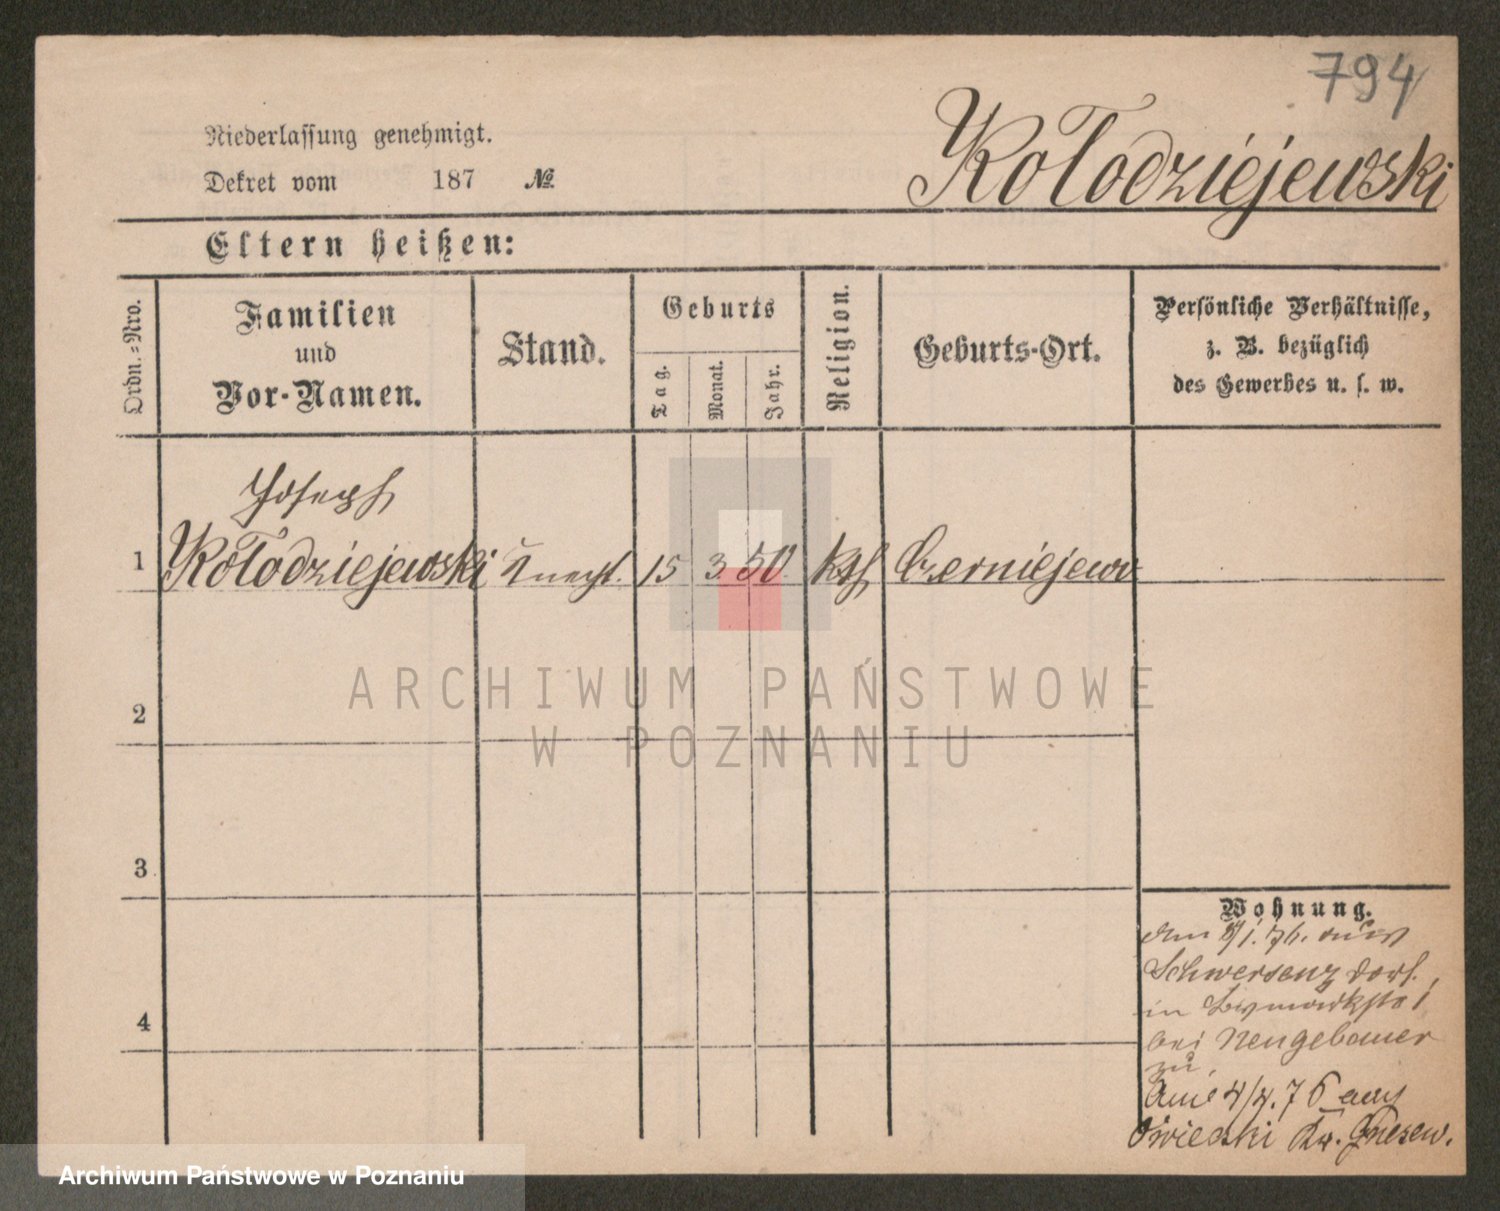 794
Niederlassung genehmigt.
Dekret vom 187 №
Kołodziejewski
Eltern heißen:
Ordn.-Nro.
Familien
und
Vor-Namen.
Stand.
Geburts
Tag.
Monat.
Jahr.
Religion.
Geburts-Ort.
Persönliche Verhältnisse,
z. B. bezüglich
des Gewerbes u. s. w.
Joseph
1 Kołodziejewski Knecht. 15 3 50 kth Czerniejewo
2
3
4
Wohnung.
Am 8/1. 76. aus
Schwersenz Dorf.
in Bismarkstr 1
bei Neugebauer
zu
Am 4/4. 76 nach
Kr. Gnesen.
ARCHIWUM PAŃSTWOWE
W POZNANIU
Archiwum Państwowe w Poznaniu